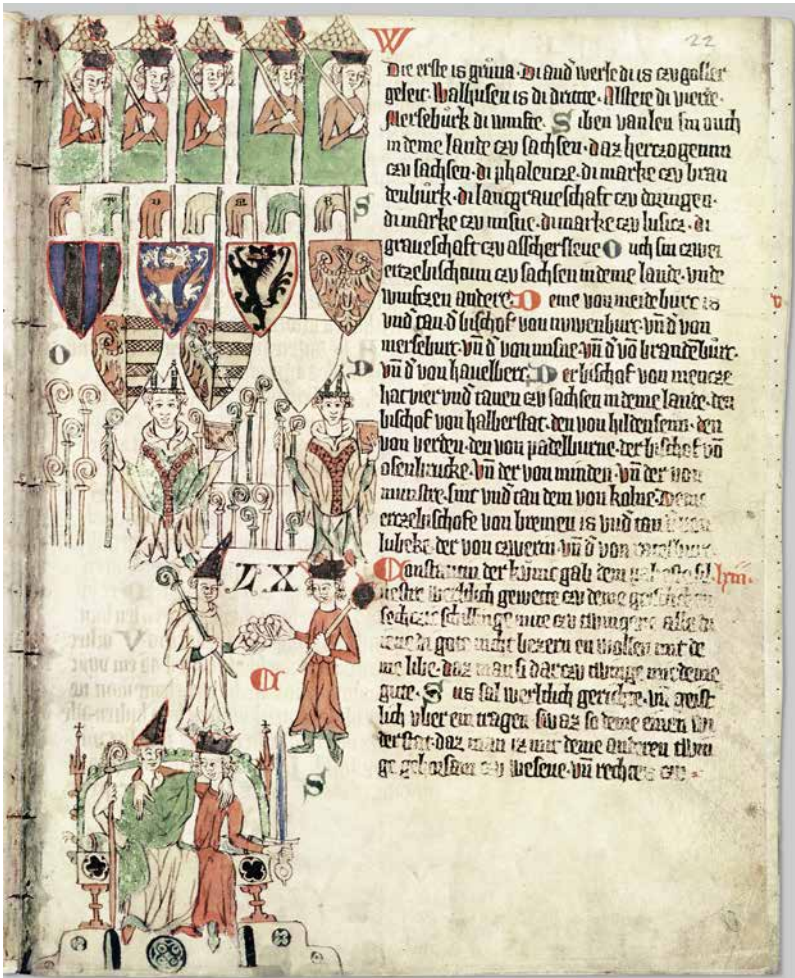 22
W
Die erste is gruna · Di and' werle di is czu gosler
geleit · Walhusen is di dritte · Alstete di vierte ·
Merseburk di vunfte · Siben vanlen sin ouch
in deme lande czu sachsen · daz herczogetum
czu sachsen · di phalencze · di marke czu bran
denburk · di lantgraueschaft czu duringen ·
di marke czu misne · di marke czu lusicz · di
graueschaft czu asschersleue Ouch sin czwei
ertzebischtum czu sachsen in deme lande · unde
vumfczen andere · Deme von meideburc is
vnd'tan · d' bischof von nuwenburc · vn̄ d' von
merseburc · vn̄ d' von misne · vn̄ d' vō brandēburc ·
vn̄ d' von hauelberc · Der bischof von mencze
hat vier vnd'tanen czu sachsen in deme lande · den
bischof von halberstat · den von hildensem · den
von verden · den von padelburne · der bischof vō
osenbrucke · vn̄ der von minden · vn̄ der von
munstre · sint vnd'tan dem von kolne · Deme
ertzebischofe von bremen is vnd'tan
lubeke der von czwerin · vn̄ d' von
Constantin der kunic gab dem
werltlich gewette czu deme
sechczic schillinge mite czu twingene alle di
gote nicht bezzern en wollen mit de
me libe · daz man si darczu twinge mit deme
gute · Sus sal werltlich gerichte · vn̄ geist
lich vber ein tragen swaz so deme einen
der stat · daz man iz mit deme anderen twin
ge gehorsam czu wesene · vn̄ rechtes czu
S
O
LX
C
S